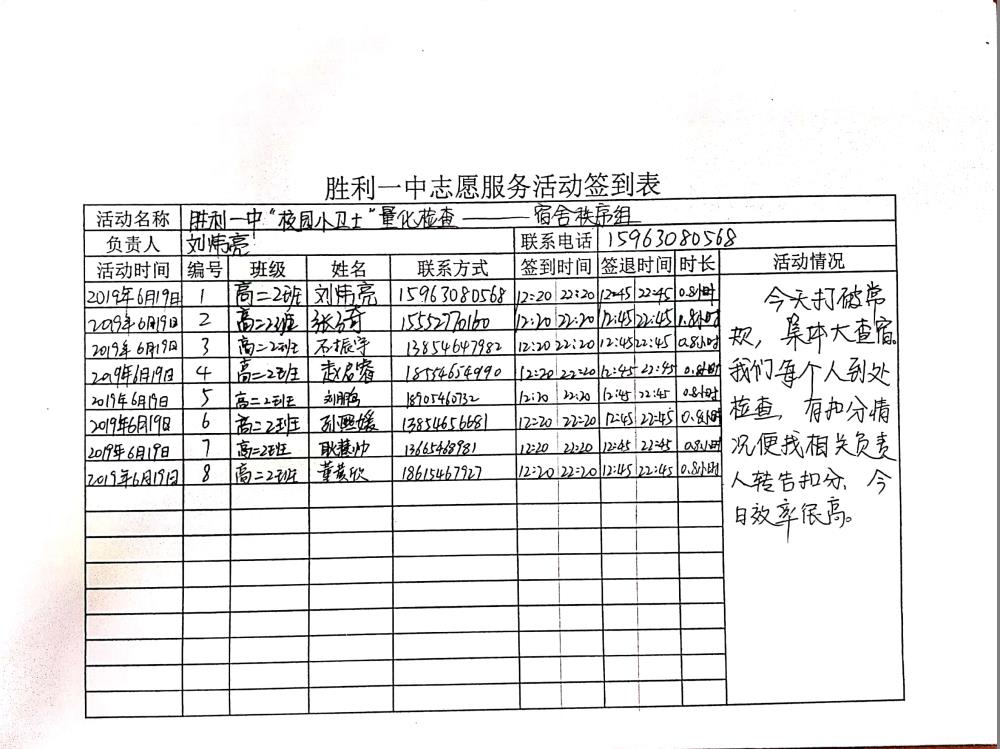 胜利一中志愿服务活动签到表
活动名称 胜利一中“校园小卫士”量化检查——宿舍秩序组
负责人 刘炜亮 联系电话 15963080568
活动时间 编号 班级 姓名 联系方式 签到时间 签退时间 时长 活动情况
2019年6月19日 1 高二2班 刘炜亮 15963080568 12:20 22:20 12:45 22:45 0.8小时
2019年6月19日 2 高二2班 张琦 15552770160 12:20 22:20 12:45 22:45 0.8小时
2019年6月19日 3 高二2班 振宇 13854647982 12:20 22:20 12:45 22:45 0.8小时
2019年6月19日 4 高二2班 赵启睿 18554654990 12:20 22:20 12:45 22:45 0.8小时
2019年6月19日 5 高二2班 刘鹏 18905460732 12:20 22:20 12:45 22:45 0.8小时
2019年6月19日 6 高二2班 孙熙媛 13854656681 12:20 22:20 12:45 22:45 0.8小时
2019年6月19日 7 高二2班 耿慧帅 13665468981 12:20 22:20 12:45 22:45 0.8小时
2019年6月19日 8 高二2班 董黄欣 18615467927 12:20 22:20 12:45 22:45 0.8小时
今天打破常
规，集体大查宿。
我们每个人到处
检查，有扣分情
况便找相关负责
人转告扣分，今
日效率很高。